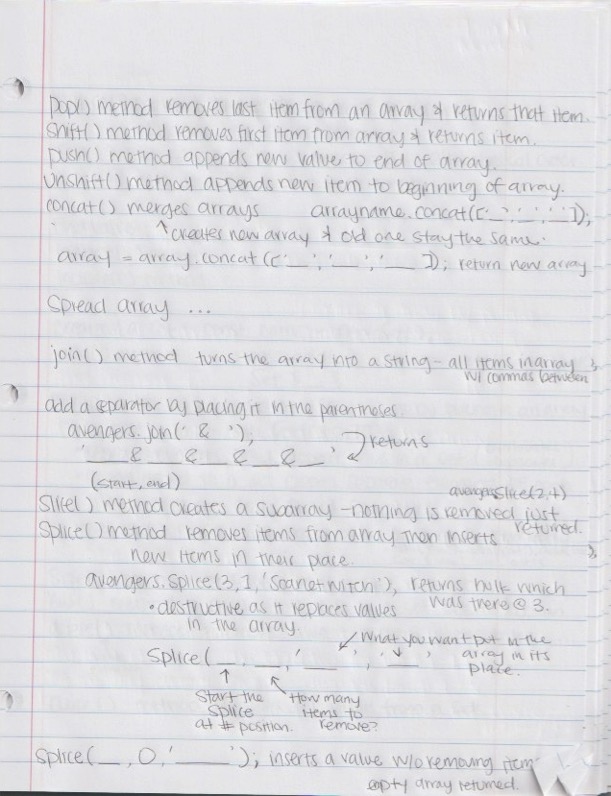 pop() method removes last item from an array & returns that item.
shift() method removes first item from array & returns item.
push() method appends new value to end of array.
unshift() method appends new item to beginning of array.
concat() merges arrays arrayname.concat(['_','_','_']);
↑creates new array & old one stay the same.
array = array.concat(['__','__','__']); return new array
Spread array ...
join() method turns the array into a string - all items in array
w/ commas between
add a separator by placing it in the parentheses.
avengers.join(' & '),
'__ & __ & __ & __ & __' returns
(start, end)
avengers.slice(2,4)
Slice() method creates a subarray - nothing is removed just
returned.
Splice() method removes items from array then inserts
new items in their place.
avengers.splice(3, 1, 'Scarlet Witch'), returns hulk which
was there @ 3.
• destructive as it replaces values
in the array.
What you want put in the
array in its
place.
Splice(__, __, '__', '__',
Start the
splice
at # position.
How many
items to
remove?
splice(__, 0, '____'); inserts a value w/o removing item
empty array returned.